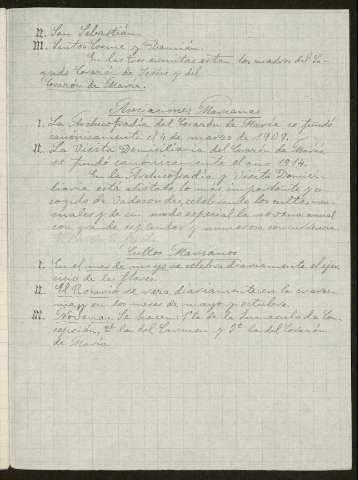 II. San Sebastián.
III. Santos Cosme y Damián.
En las tres ermitas están los cuadros del Sa-
grado Corazón de Jesús y del
Corazón de María.
Asociaciones Marianas
I. La Archicofradía del Corazón de María se fundó
canónicamente el 4 de marzo de 1909.
II. La Visita Domiciliaria del Corazón de María
se fundó canónicamente el año 1914.
En la Archicofradía y Visita Domici-
liaria está alistado lo más importante y es-
cogido de celebrando los cultos men-
suales y de un modo especial la novena anual
con gran esplendor y numerosa concurrencia
Cultos Marianos
I. En el mes de mayo se celebra diariamente el ejer-
cicio de las flores.
II. El Rosario se reza diariamente en la cuares-
ma y en los meses de mayo y octubre.
III. Novenas. Se hacen: 1ª la de la Inmaculada Con-
cepción, 2ª la del Carmen y 3ª la del Corazón
de María